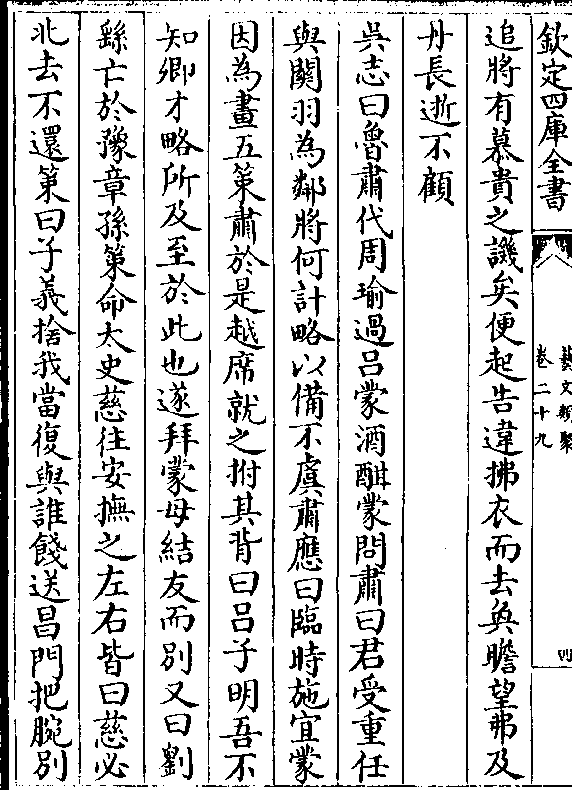 欽定四庫全書
藝文類聚
卷二十九
四
追將有慕貴之譏矣便起告違拂衣而去奐瞻望弗及
丹長逝不顧
吳志曰魯肅代周瑜過吕蒙酒酣蒙問肅曰君受重任
與關羽為鄰將何計略以備不虞肅應曰臨時施宜蒙
因為畫五策肅於是越席就之拊其背曰吕子明吾不
知卿才略所及至於此也遂拜蒙母結友而別又曰劉
繇亡於豫章孫策命太史慈往安撫之左右皆曰慈必
北去不還策曰子義捨我當復與誰餞送昌門把腕別